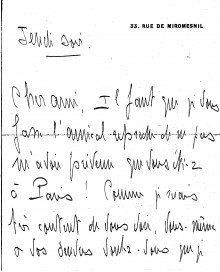 33, RUE DE MIROMESNIL
Jeudi soir.
Cher ami, Il faut que je vous
fasse l'amical reproche de ne pas
m'avoir prévenu que vous étiez
à Paris ! Comme je serais
très content de vous voir, vous-même
& vos dessins voulez-vous que je